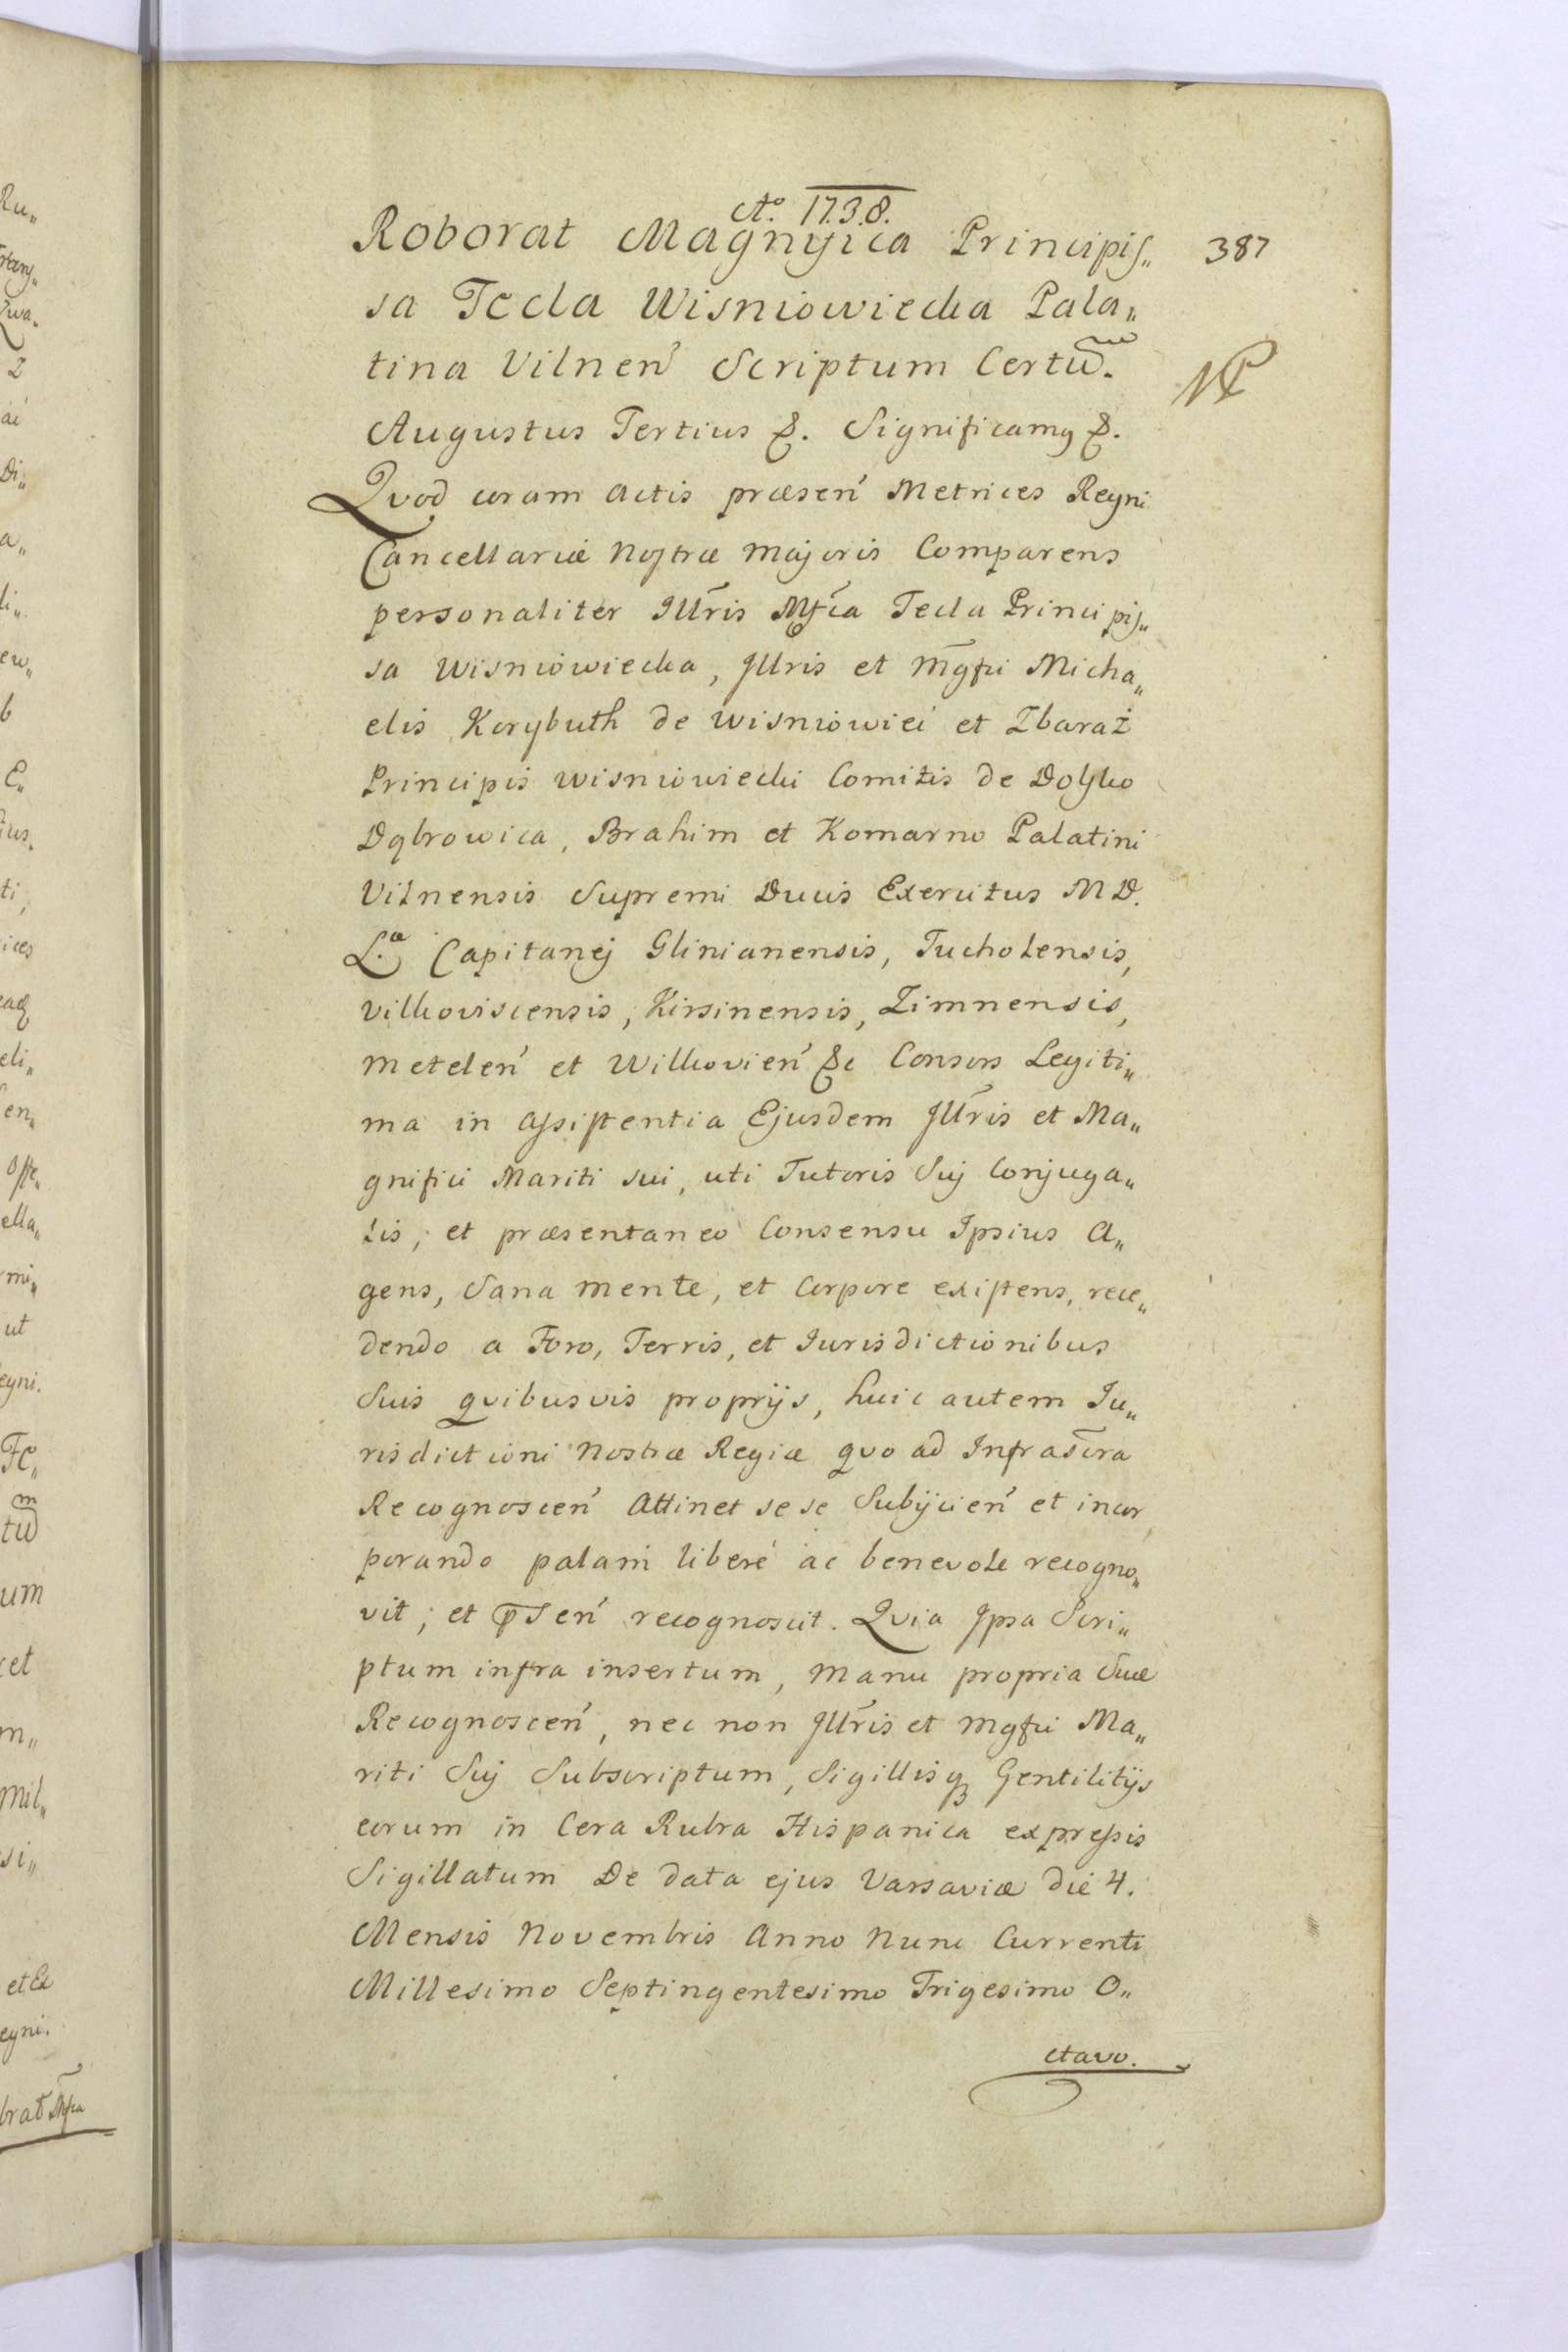 Aº 1738.
387
Roborat Magnifica Principis„
sa Tecla Wisniowiecka Pala„
tina Vilnen̄ Scriptum Certum.
NP
Augustus Tertius &. Significamus &.
Quod coram Actis præsen̄ Metrices Regni
Cancellariæ Nostræ Majoris Comparens
personaliter Illr̄is Mgf̄ca Tecla Principis„
sa Wisniowiecka, Illris et M̄gfci Micha„
elis Korybuth de Wisniowiec et Zbaraż
Principis Wisniowiecki Comitis de Dolsko
Dąbrowica, Brahim et Komarno Palatini
Vilnensis Supremi Ducis Exercitus M D.
L.æ Capitanej Glinianensis, Tucholensis,
Vilkoviscensis, Kirsinensis, Zimnensis,
Metelen̄ et Wilkovien̄ &c Consors Legiti„
ma in Assistentia Ejusdem Illr̄is et Ma„
gnifici Mariti sui, uti Tutoris Suj Conjuga„
lis, et præsentaneo Consensu Ipsius A„
gens, Sana mente, et Corpore existens, rece„
dendo a Foro, Terris, et Iurisdictionibus
Suis quibusvis proprijs, huic autem Iu„
risdictioni Nostræ Regiæ quo ad Infrascr̄a
Recognoscen̄ Attinet se se Subijcien̄ et incor„
porando palam liberé ac benevole recogno„
vit; et p̄sen̄ recognoscit. Quia Ipsa Scri„
ptum infra insertum, manu propria Suæ
Recognoscen̄, nec non Illr̄is et Mgfci Ma„
riti Suj Subscriptum, Sigillisq3 Gentilitijs
eorum in Cera Rubra Hispanica expressis
Sigillatum De data ejus Varsaviæ die 4.
Mensis Novembris Anno Nunc Currenti
Millesimo Septingentesimo Trigesimo O„
ctavo.